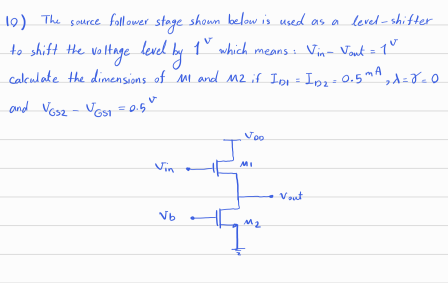 10) The source follower stage shown below is used as a level-shifter
to shift the voltage level by 1 V which means: Vin - Vout = 1 V
calculate the dimensions of M1 and M2 if ID1 = ID2 = 0.5 mA, λ=γ=0
and VGS2 - VGS1 = 0.5 V
VDD
Vin
M1
Vout
Vb
M2